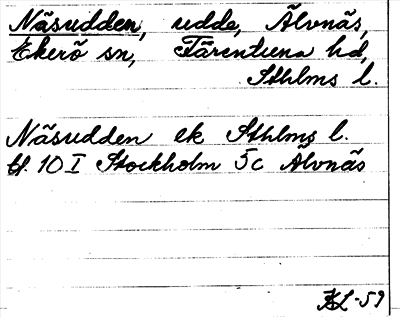 Näsudden, udde, Älvnäs,
Ekerö sn, Färentuna hd,
Sthlms l.
Näsudden ek Sthlms l.
bl. 10 I Stockholm 5c Älvnäs
KL-59